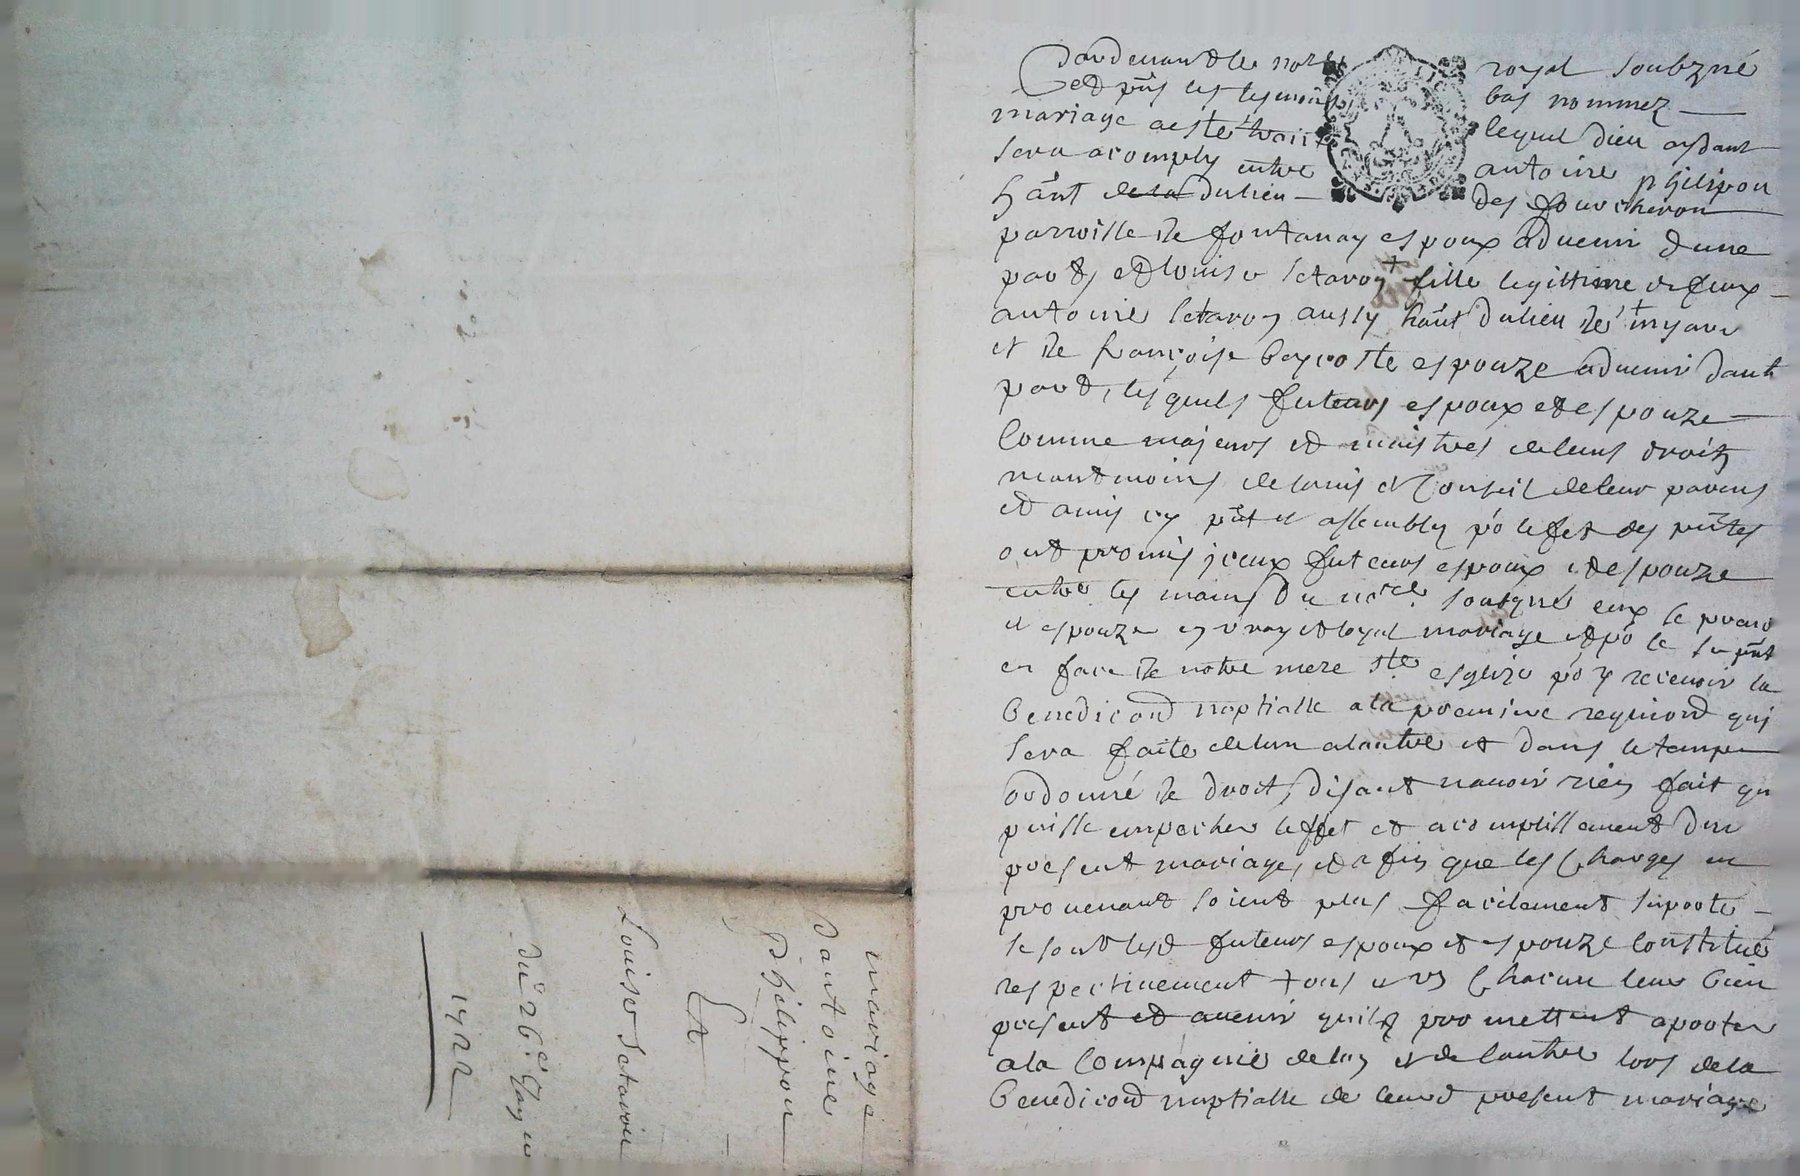 mariage
dantoine
Phelippon
Et
Louise
du 26e
1722
Pardevant le nore royal soubzné
et pnts les tesmoins bas nommez
mariage a esté lequel dieu aydant
sera acomply entre antoine phelipon
hant de la du lieu des fourcheron
parroisse de fontanay espoux advenir dune
part, et louise fille legittime de feux
antoine aussy hant du lieu de
et de françoise espouze advenir dautre
part, lesquels futeurs espoux et espouze
comme majeurs et maistres de leurs droits
neantmoins de lavis et conseil de leur parens
et amis cy pnt et assembly po lefet des pntes
ont promis jceux futeurs espoux et espouze
entre les mains du nore sousigné eux se prendre
et espouze en vray et loyal mariage et po le
en face de notre mere ste esglize po y recevoir la
benediond nuptialle a la premiere requiond qui
sera faite de lun a lautre et dans le temps
ordonné de droit, disant navoir rien fait qui
puisse empecher leffet et acomplissement du
present mariage, et afin que les charges en
provenant soient plus facilement suporte
se sont lesd futeurs espoux et espouze constitués
respectivement tous chacun leur bien
present et avenir quilz promettent aporter
a la compagnie de lun et de lautre lors de la
benediond nuptialle de leurd present mariage